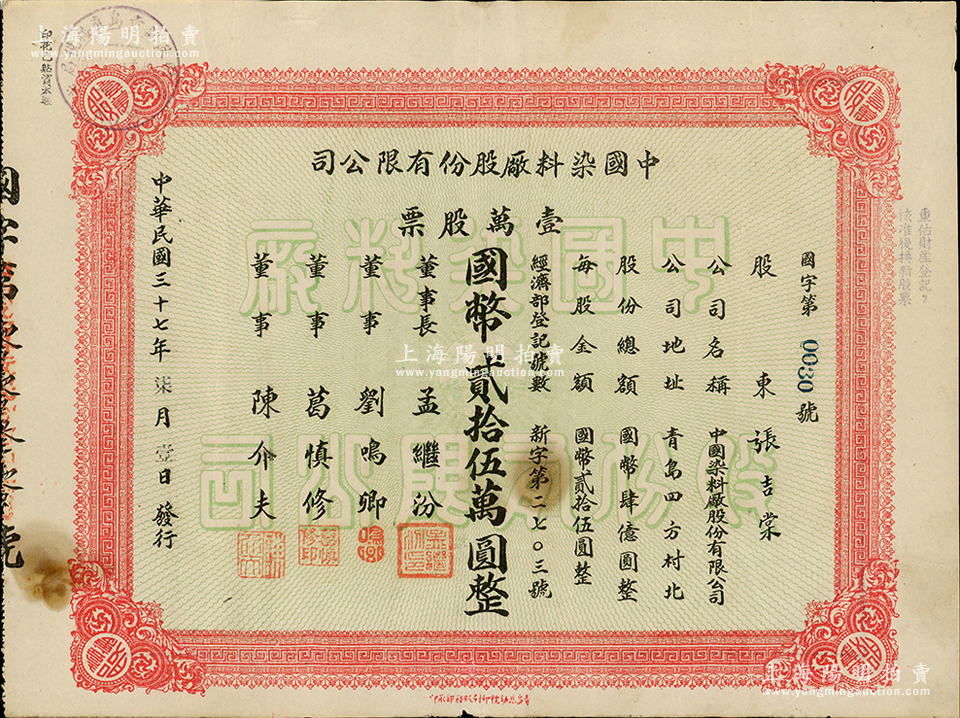 上海陽明拍賣
www.yangmingauction.com
中國染料廠股份有限公司
壹萬股票
國字第0030號
股東 張吉棠
公司名稱 中國染料廠股份有限公司
公司地址 青島四方村北
股份總額 國幣肆億圓整
每股金額 國幣貳拾伍圓整
經濟部登記號數 新字第二七〇三號
國幣貳拾伍萬圓整
董事長 孟繼汾
董事 劉鳴卿
董事 葛慎修
董事 陳介夫
中華民國三十七年柒月壹日發行
重估財產登記
核准後換新股票
中國染料廠
股份有限公司
國字第
號
上海陽明拍賣
www.yangmingauction.com
上海陽明拍賣
www.yangmingauction.com